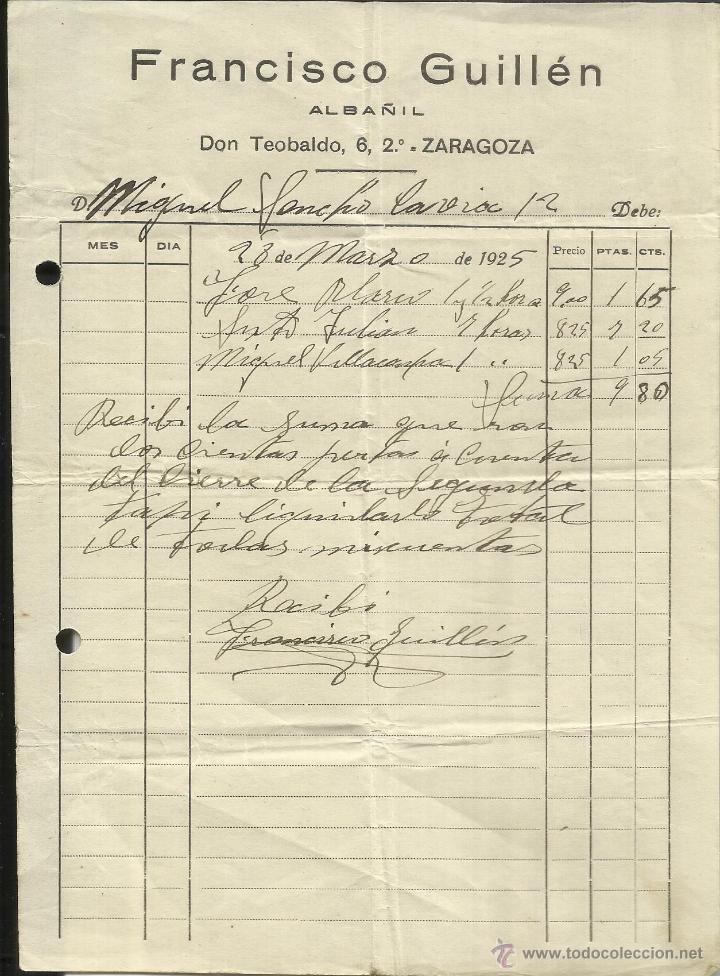 Francisco Guillén
ALBAÑIL
Don Teobaldo, 6, 2.º - ZARAGOZA
D. Miguel Sancho Lavia 12 Debe:
MES DIA 28 de Marzo de 1925 Precio PTAS. CTS.
José 1 y ½ hora 9.00 1 65
Julian 7 horas 825 7 20
Miguel Villacampa 1 " 825 1 05
Suma 9 80
Recibi la suma que son
dos cientas pertas a cuenta
del cierre de la Segunda
tapi liquidado total
de todas miscuentas
Recibi
Francisco Guillén
www.todocoleccion.net